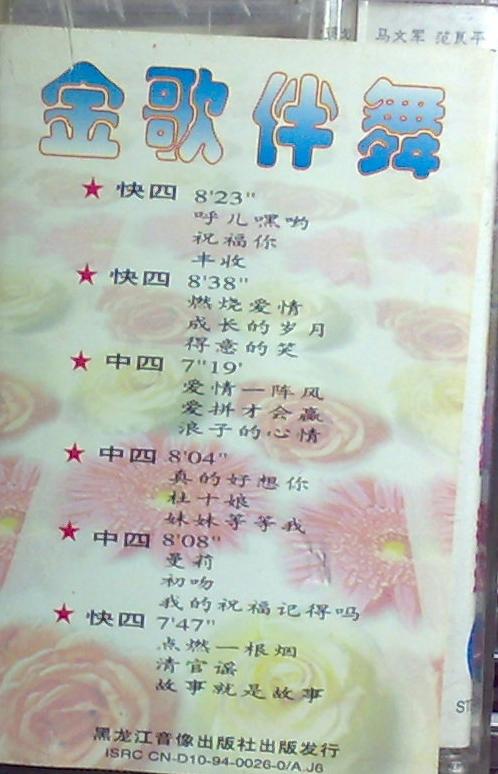 马文军 范良平
金歌伴舞
★ 快四 8'23"
呼儿嘿哟
祝福你
丰收
★ 快四 8'38"
燃烧爱情
成长的岁月
得意的笑
★ 中四 7"19'
爱情一阵风
爱拼才会赢
浪子的心情
★ 中四 8'04"
真的好想你
杜十娘
妹妹等等我
★ 中四 8'08"
曼莉
初吻
我的祝福记得吗
★ 快四 7'47"
点燃一根烟
清官谣
故事就是故事
ST
黑龙江音像出版社出版发行
ISRC CN-D10-94-0026-0/A.J6